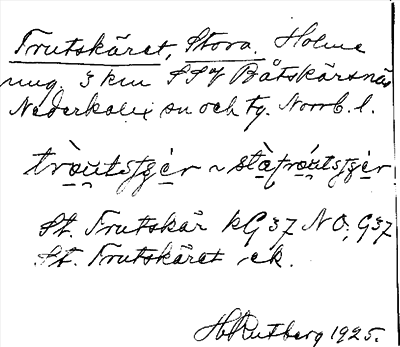 Trutskäret, Stora. Holme
ung. 3 km SSV Båtskärsnäs
Nederkalix sn och tg. Norrb. l.
St. Trutskär kG 37 NO, G37
St. Trutskäret, ek.
H. Rutberg 1925.